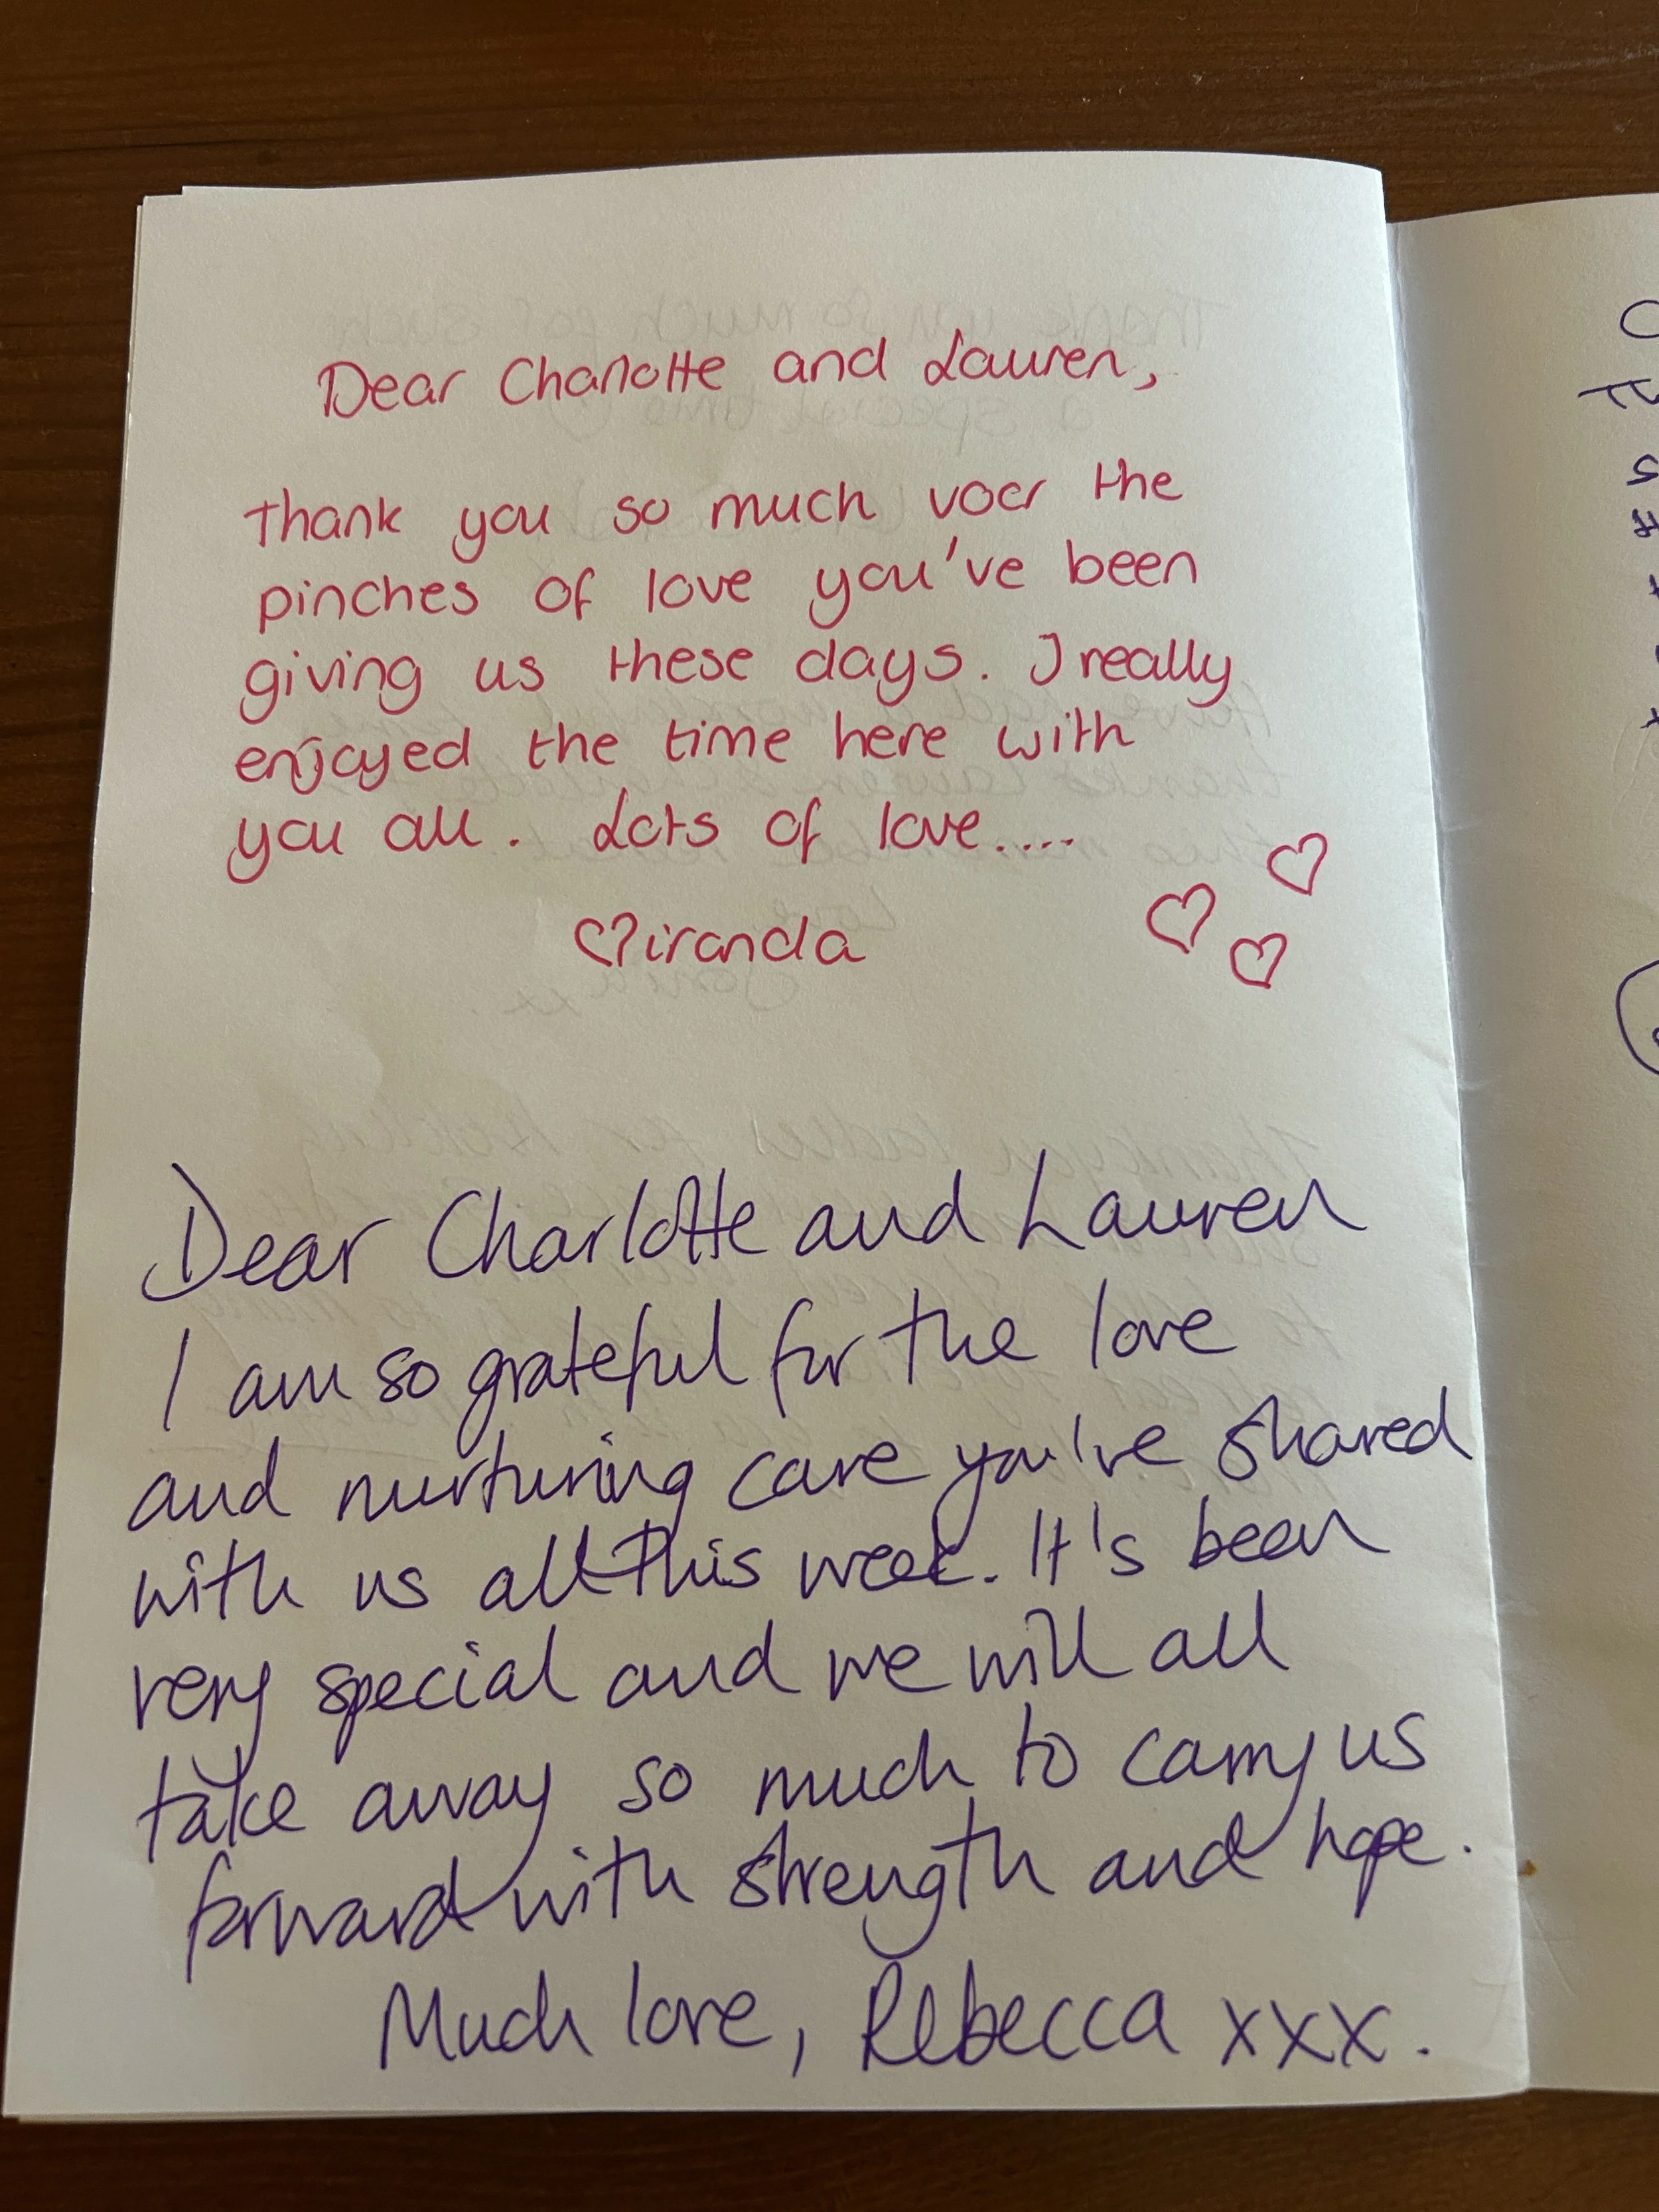 Dear Charlotte and Lauren,
thank you so much voor the
pinches of love you've been
giving us these days. I really
enjoyed the time here with
you all. Lots of love....
Miranda
Dear Charlotte and Lauren
I am so grateful for the love
and nurturing care you've shared
with us all this week. It's been
very special and we will all
take away so much to carry us
forward with strength and hope.
Much love, Rebecca xxx.